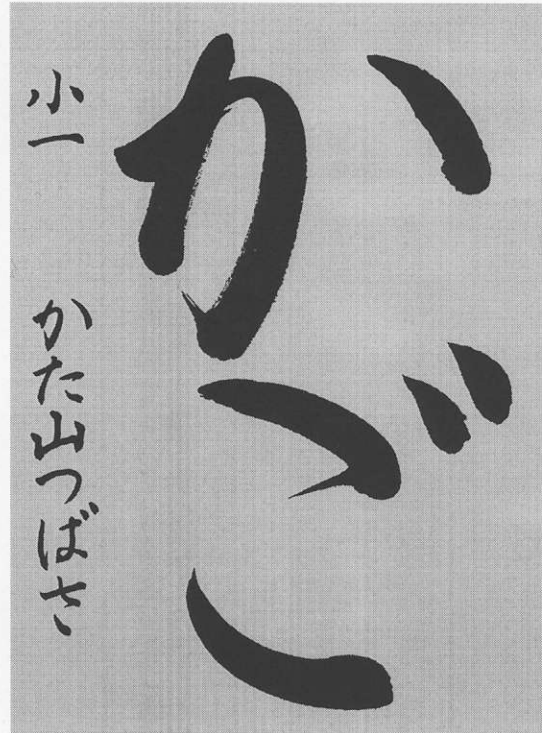 かご
小一 かた山つばさ